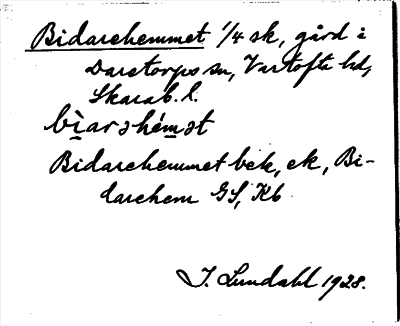 Bidarehemmet 1/4 sk, gård i
Daretorps sn, Vartofta hd,
Skarab. l.
bìarəhémət
Bidarehemmet bek, ek, Bi-
darehem GS, Kb
I. Lundahl 1928.